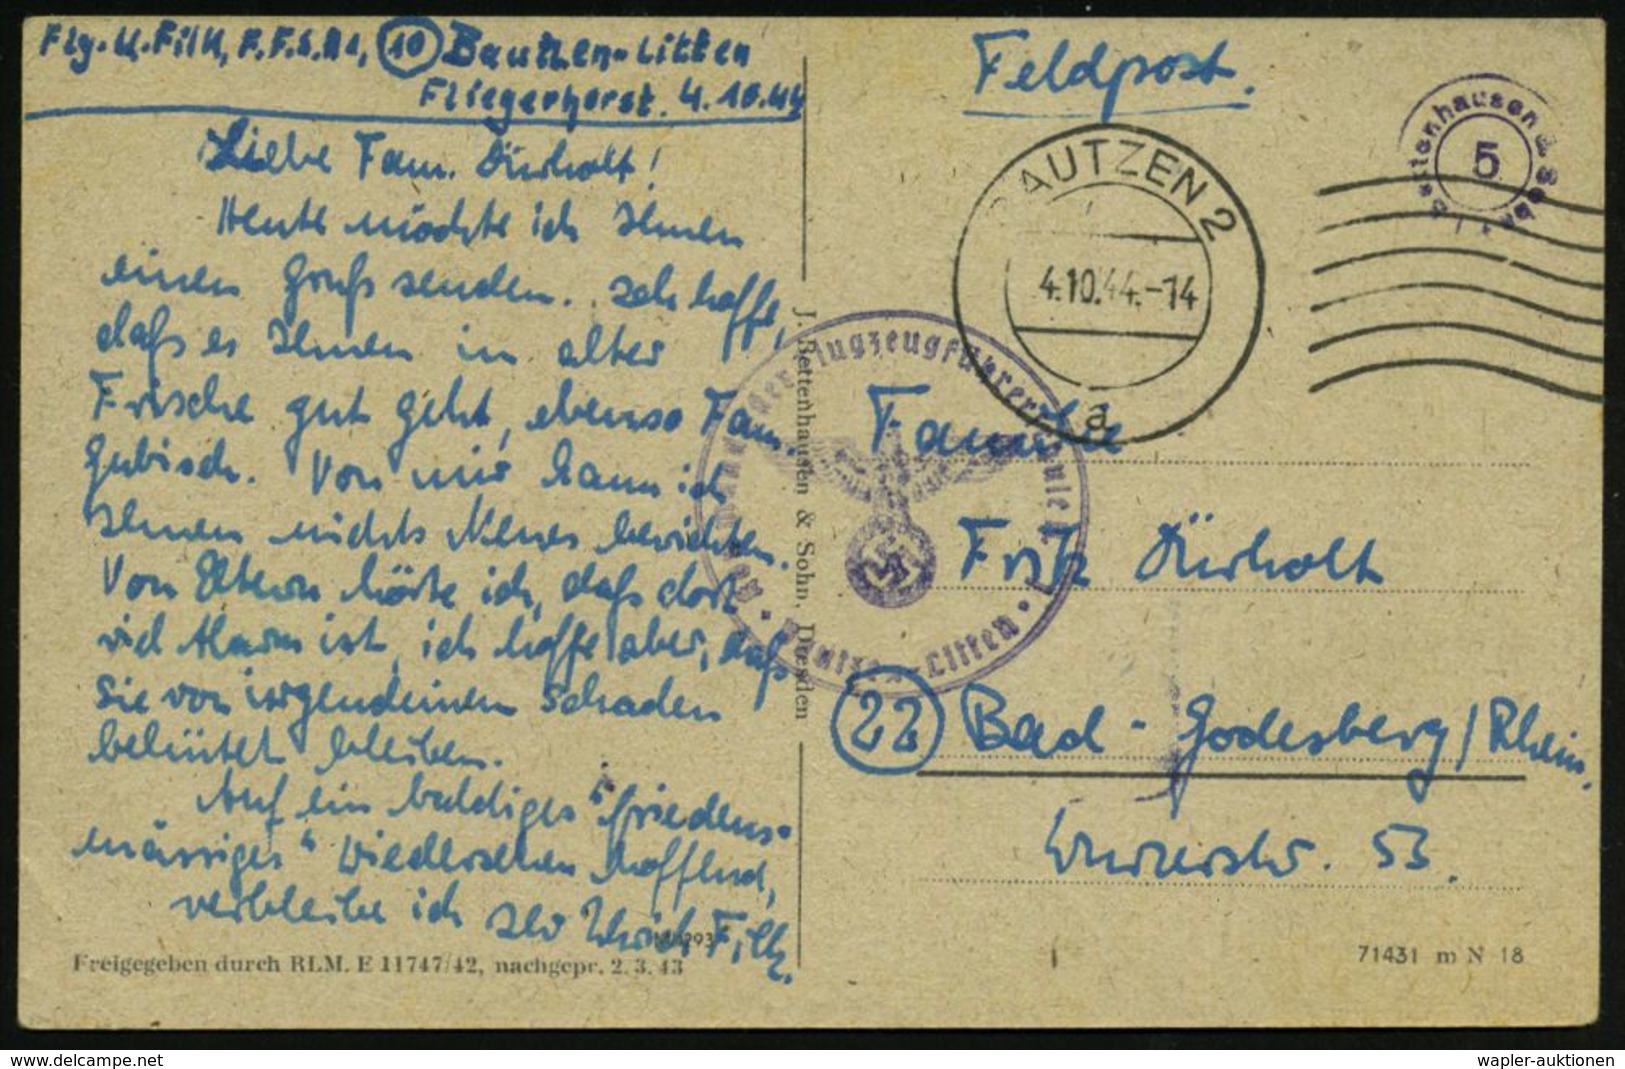 Flg. U. Filk, F.F.S. A 1, (10) Bautzen-Litten
Fliegerhorst. 4.10.44
Liebe Fam. Dürholt!
Heute möchte ich Ihnen
einen Gruß senden. Ich hoffe,
daß es Ihnen in alter
Frische gut geht, ebenso Fam.
Gubisch. Von mir kann ich
Ihnen nichts Neues berichten.
Von Eltern hörte ich, daß dort
viel Alarm ist, ich hoffe aber, daß
Sie von irgendeinem Schaden
behütet bleiben.
Auf ein baldiges "friedens-
mässiges" Wiedersehen hoffend,
verbleibe ich Ihr Ulrich Filk.
Freigegeben durch RLM. E 11747/42, nachgepr. 2. 3. 43
J. Bettenhausen & Sohn, Dresden
Feldpost.
BAUTZEN 2
4.10.44.-14
a
Bettenhausen & Sohn
5
Flugzeugführerschule
Bautzen-Litten
Familie
Fritz Dürholt
(22) Bad-Godesberg/Rhein.
Wurzerstr. 53.
71431 m N 18
wapler-auktionen.com
wapler-auktionen